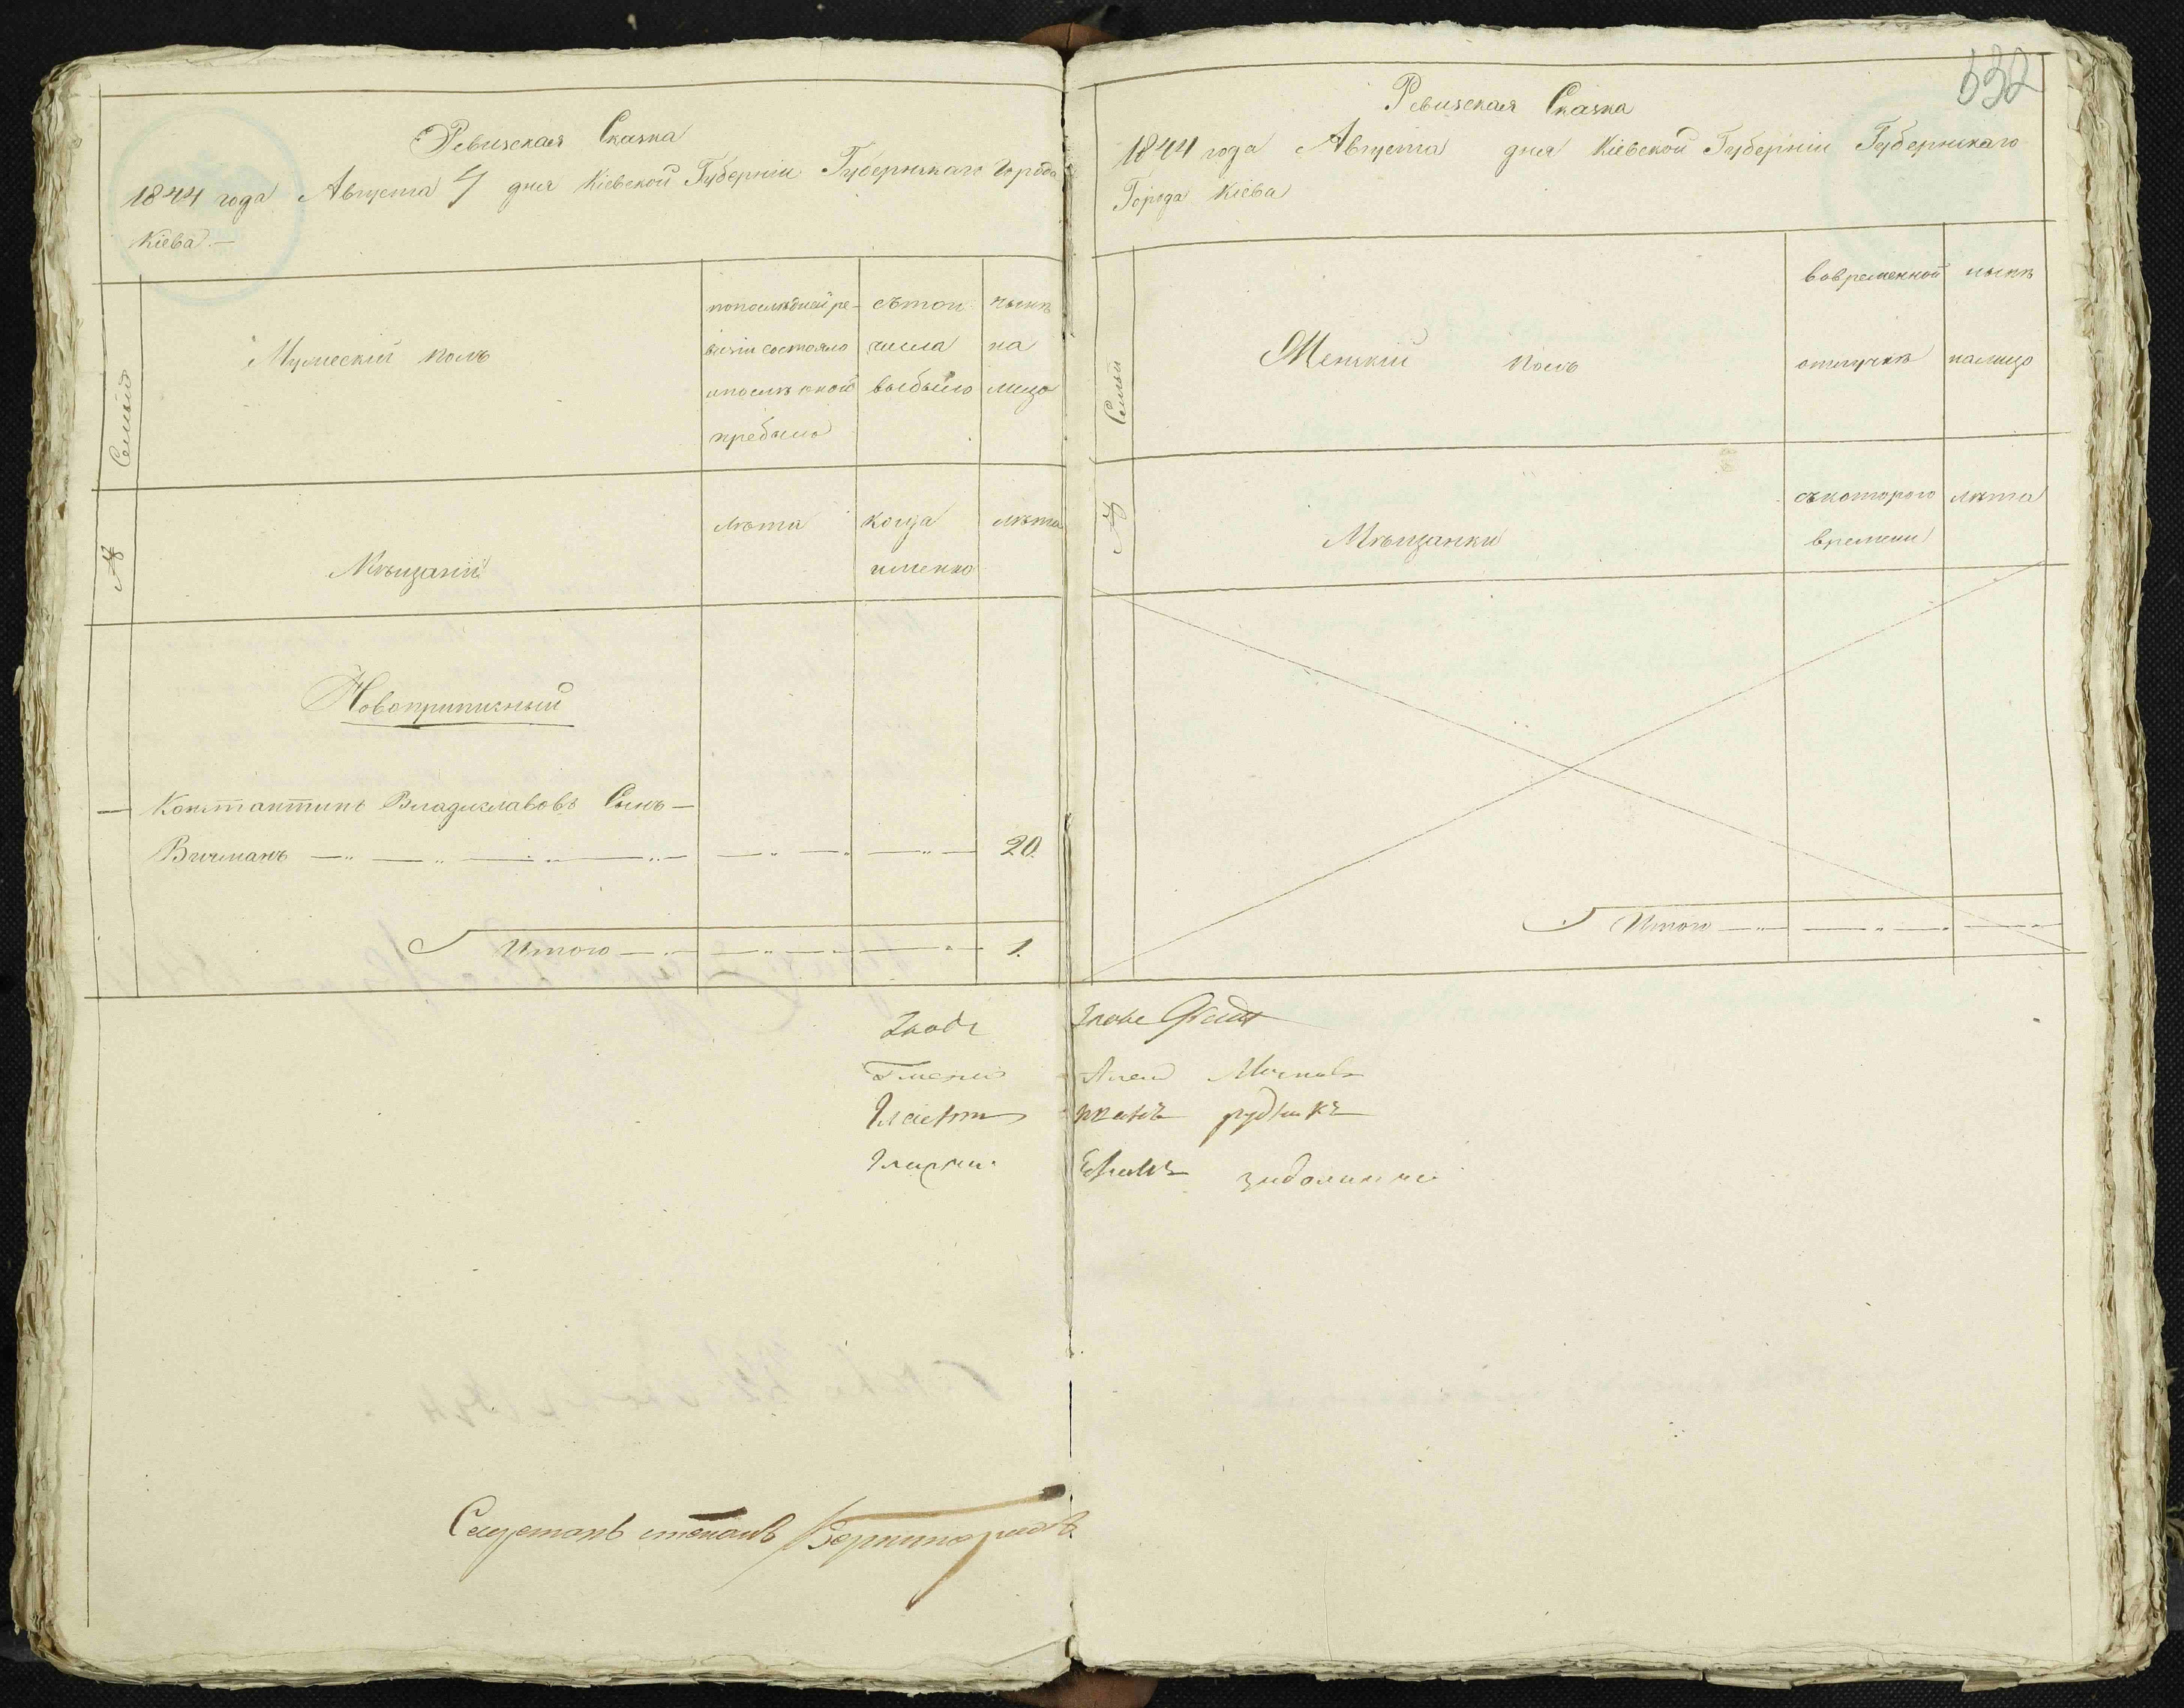 Ревизская Сказка
1844 года Августа 4 дня Кіевской Губерніи Губернскаго Города
Кіева.—
Семьи
№
Мужескій полъ
по послѣдней ре-
визіи состояло
и послѣ оной
прибыло
съ того
числа
выбыло
нынѣ
на
лицо
Мѣщани
лѣта
когда
именно
лѣта
Новоприписный
— Константинъ Владиславовъ Сынъ —
Вичманъ — 20.
Итого — 1.
632
Ревизская Сказка
1844 года Августа дня Кіевской Губерніи Губернскаго
Города Кіева
Семьи
№
Женскій полъ
во временной
отлучкѣ
нынѣ
налицо
Мѣщанки
съ котораго
времени
лѣта
Итого —
Гласни иванъ рудникъ
степанъ